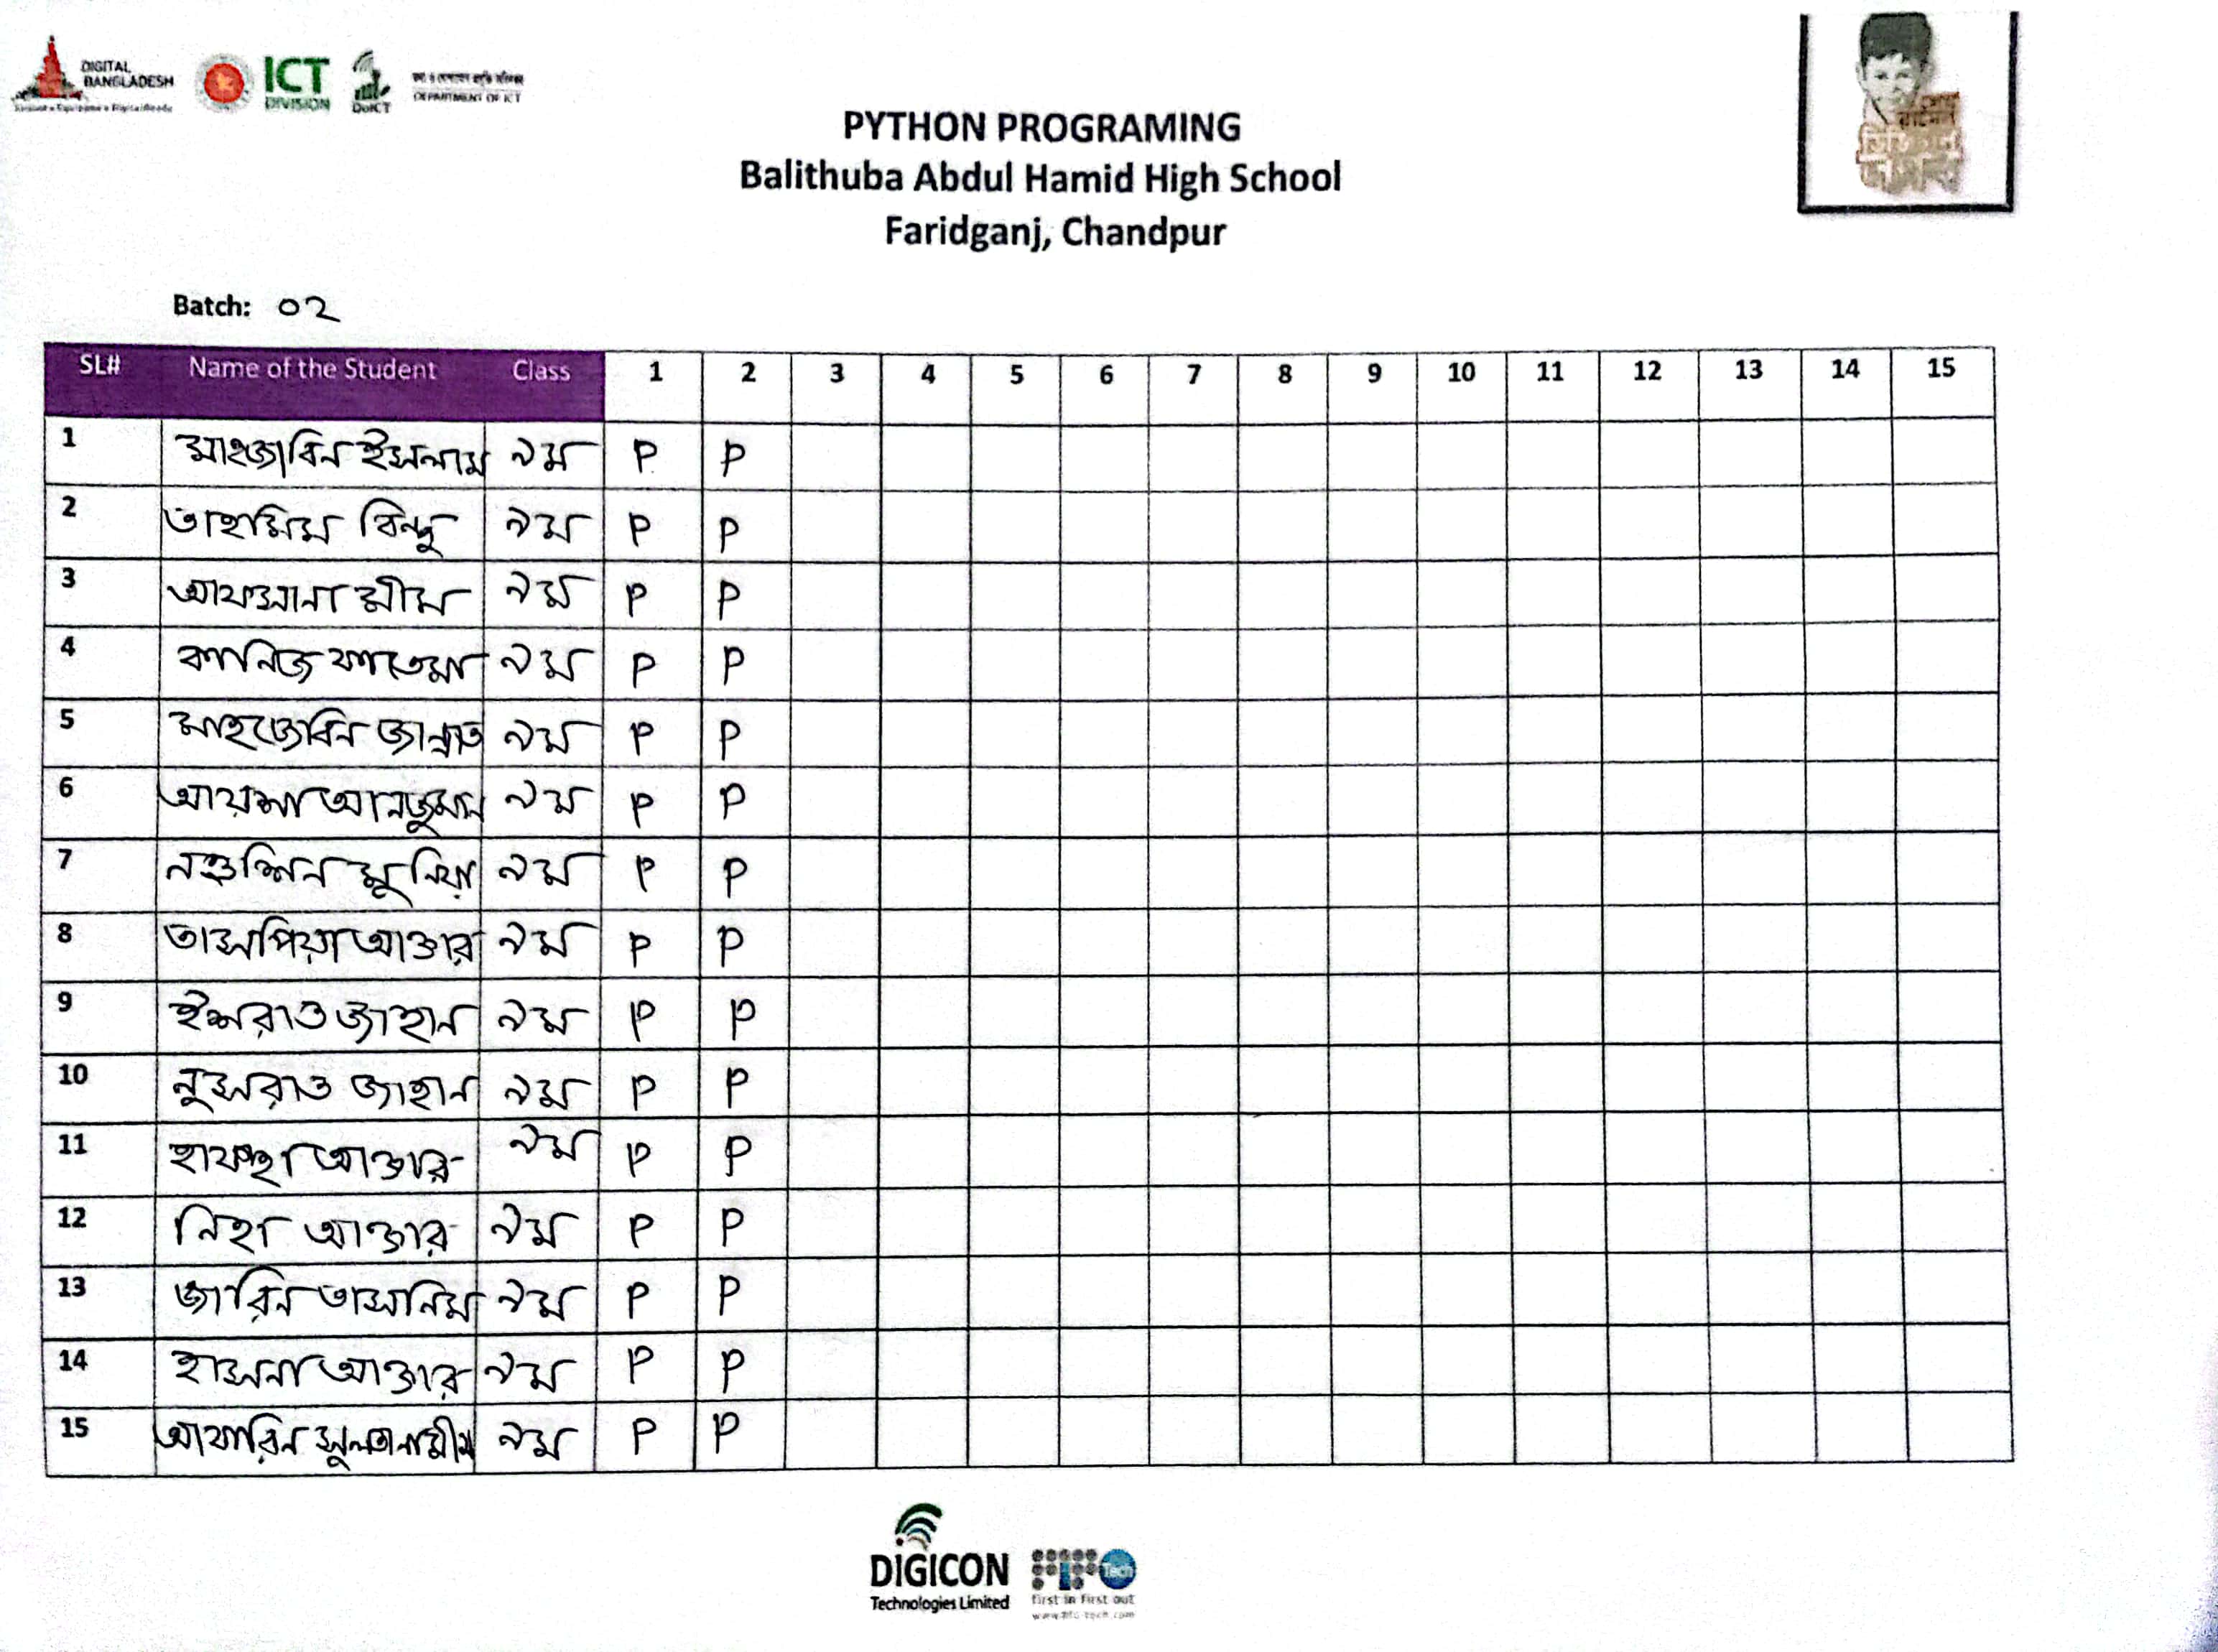 DIGITAL
BANGLADESH
ICT
DIVISION
DoICT
DEPARTMENT OF ICT
PYTHON PROGRAMING
Balithuba Abdul Hamid High School
Faridganj, Chandpur
Batch: ০২
SL# Name of the Student Class 1 2 3 4 5 6 7 8 9 10 11 12 13 14 15
1 মাহজাবিন ইসলাম ৯ম P P
2 তাহমিম বিন্দু ৯ম P P
3 আফসানা মীম ৯ম P P
4 কানিজ ফাতেমা ৯ম P P
5 মাহজেবিন জান্নাত ৯ম P P
6 আয়শা আনজুমান ৯ম P P
7 নওশিন মুনিয়া ৯ম P P
8 তাসপিয়া আক্তার ৯ম P P
9 ইশরাত জাহান ৯ম P P
10 নুসরাত জাহান ৯ম P P
11 হাফছা আক্তার ৯ম P P
12 নিহা আক্তার ৯ম P P
13 জারিন তাসনিম ৯ম P P
14 হাসনা আক্তার ৯ম P P
15 আফরিন সুলতানা মীম ৯ম P P
DIGICON
Technologies Limited
Tech
first in First out